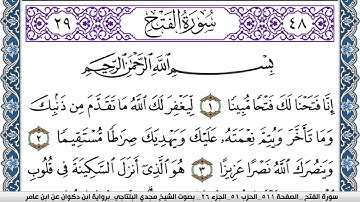 ٢٩ سُورَةُ الْفَتْحِ ٤٨
بِسْمِ اللَّهِ الرَّحْمَٰنِ الرَّحِيمِ
إِنَّا فَتَحْنَا لَكَ فَتْحًا مُبِينًا ١ لِيَغْفِرَ لَكَ اللَّهُ مَا تَقَدَّمَ مِن ذَنۢبِكَ
وَمَا تَأَخَّرَ وَيُتِمَّ نِعْمَتَهُ عَلَيْكَ وَيَهْدِيَكَ صِرَاطًا مُسْتَقِيمًا ٢
وَيَنصُرَكَ اللَّهُ نَصْرًا عَزِيزًا ٣ هُوَ الَّذِي أَنزَلَ السَّكِينَةَ فِي قُلُوبِ
سورة الفتح_ الصفحة ٥١١_الحزب ٥١_الجزء ٢٦_ بصوت الشيخ مجدي البلتاجي_برواية ابن ذكوان عن ابن عامر